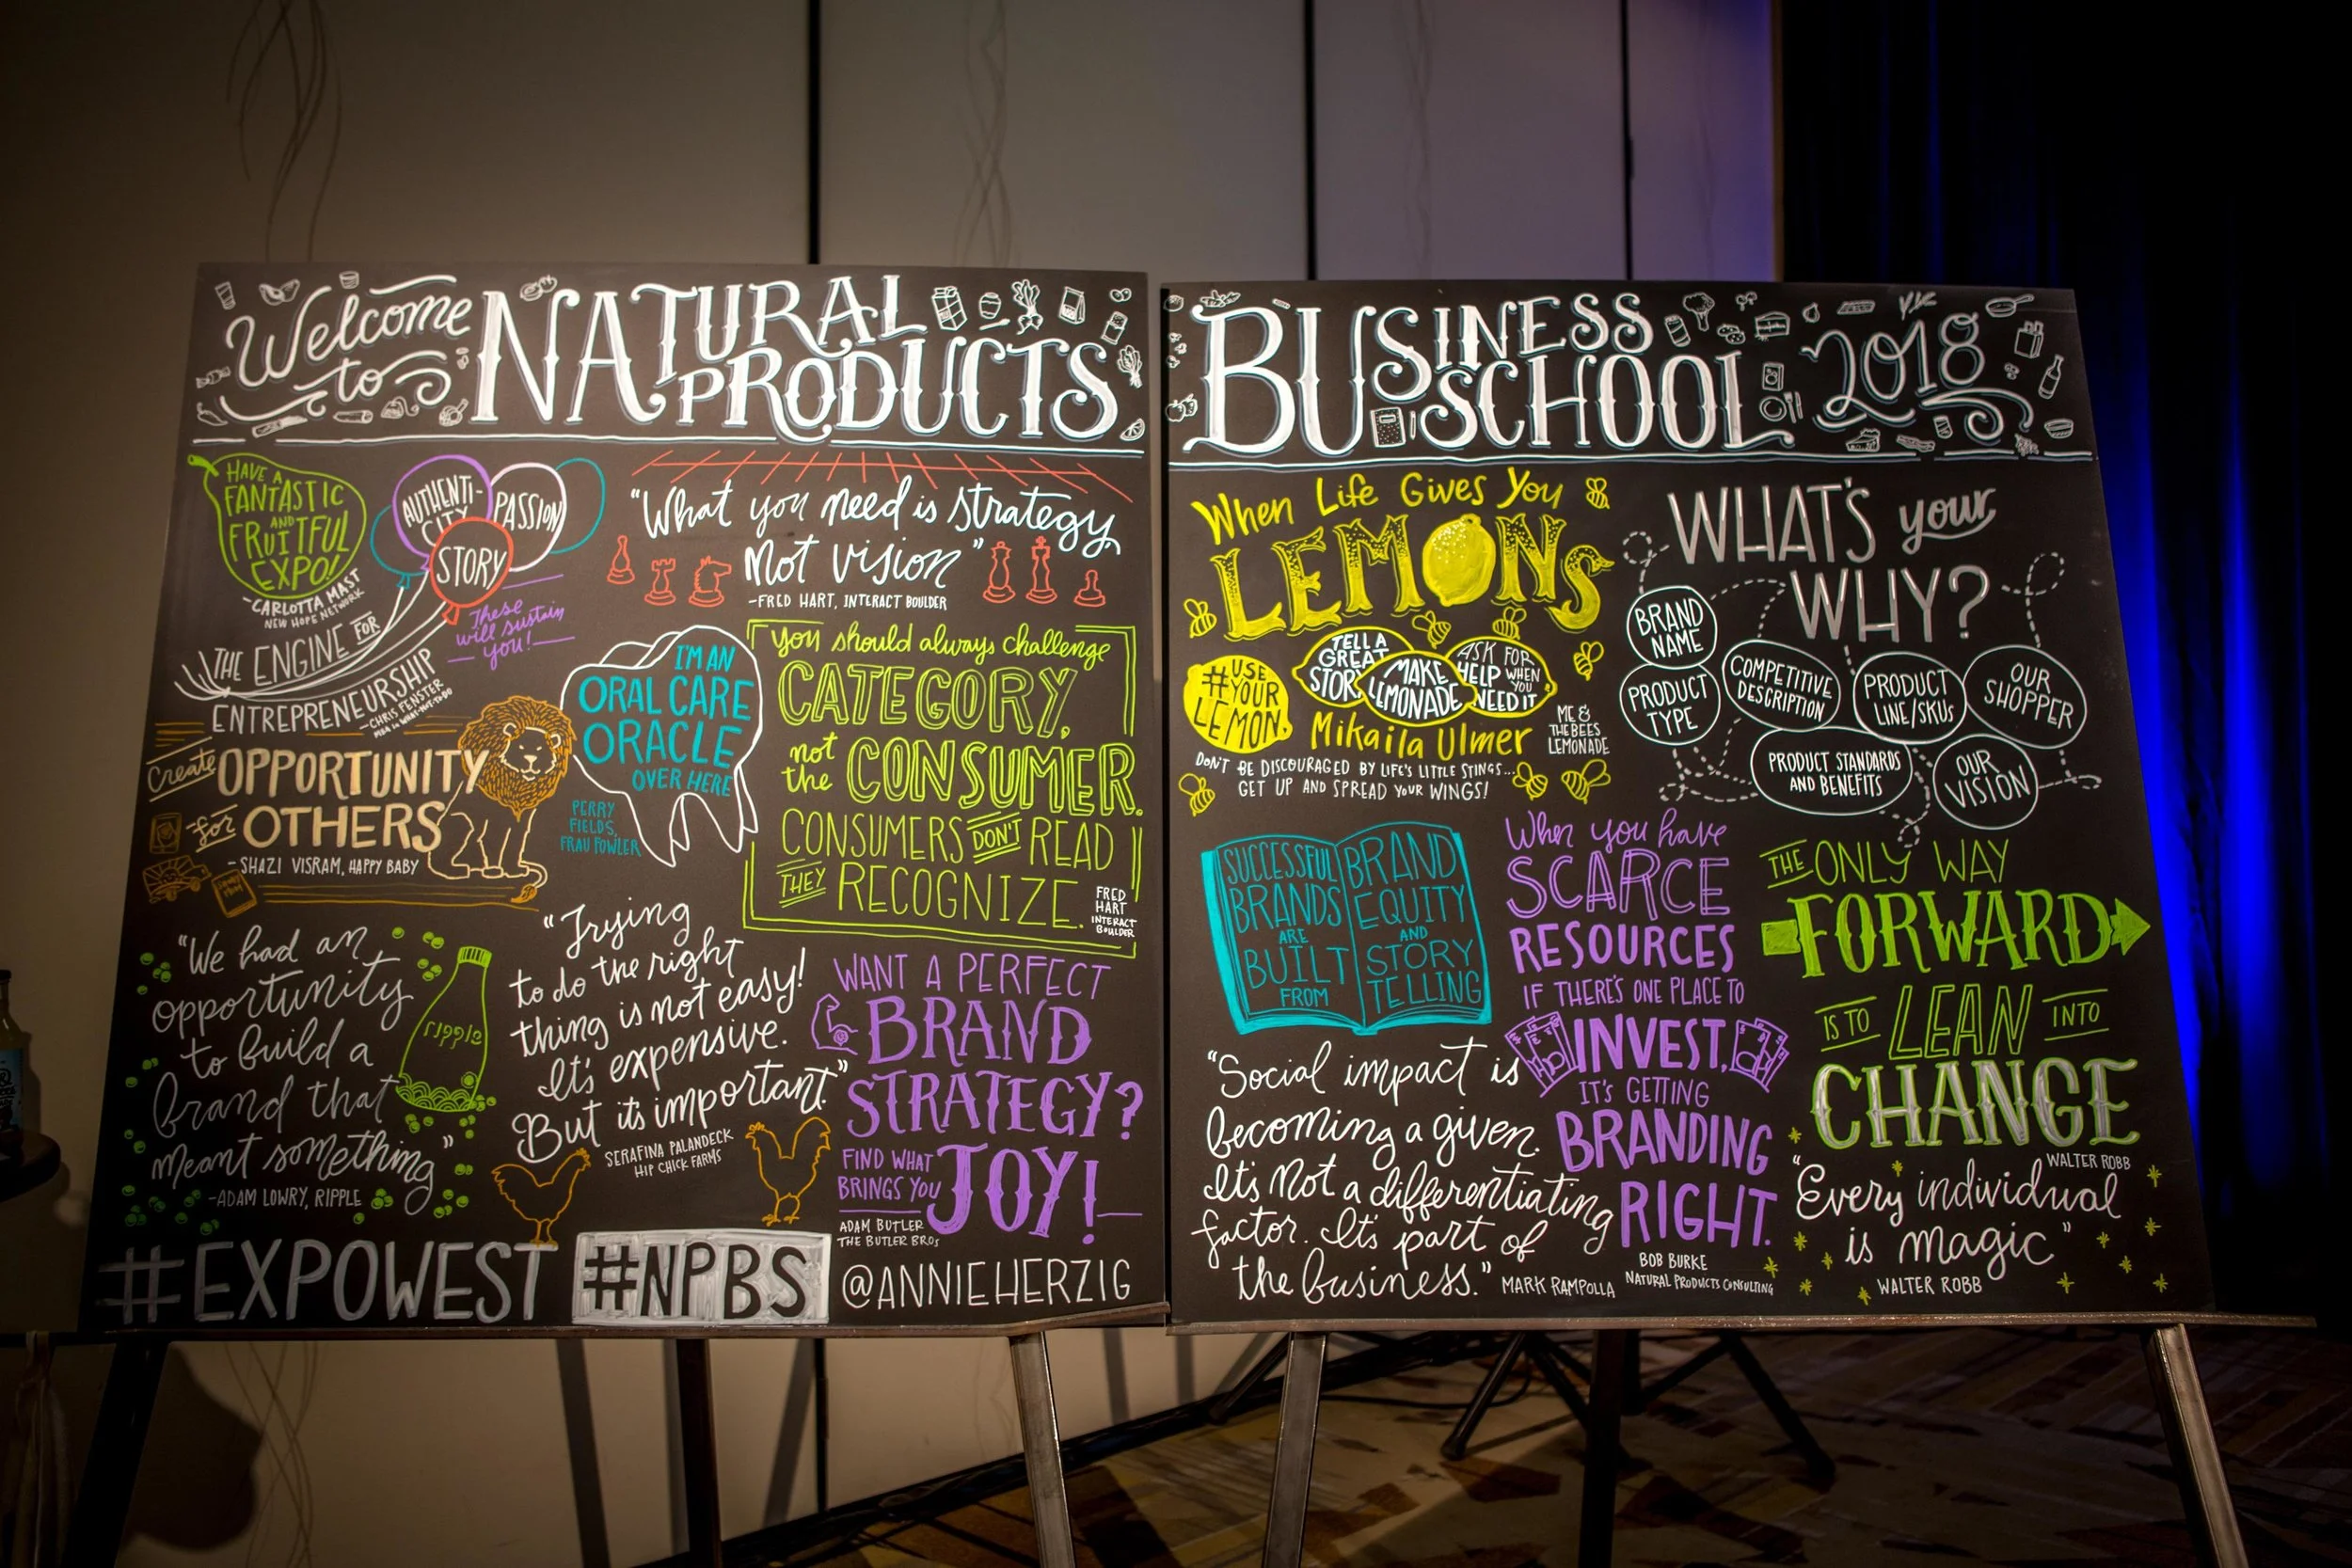 Welcome
to
NATURAL
PRODUCTS
HAVE A
FANTASTIC
AND
FRUITFUL
EXPO!
-CARLOTTA MAST
NEW HOPE NETWORK
AUTHENTI-
CITY
PASSION
STORY
These
will sustain
you!
THE ENGINE FOR
ENTREPRENEURSHIP
-CHRIS FENSTER
"What you need is strategy
Not vision"
-FRED HART, INTERACT BOULDER
I'M AN
ORAL CARE
ORACLE
OVER HERE
PERRY
FIELDS,
FRAU FOWLER
you should always challenge
CATEGORY,
not
the CONSUMER.
CONSUMERS DON'T READ
THEY RECOGNIZE.
FRED
HART
INTERACT
BOULDER
Create OPPORTUNITY
for OTHERS
- SHAZI VISRAM, HAPPY BABY
"We had an
opportunity
to build a
brand that
meant something"
-ADAM LOWRY, RIPPLE
ripple
"Trying
to do the right
thing is not easy!
It's expensive.
But it's important."
SERAFINA PALANDECK
HIP CHICK FARMS
WANT A PERFECT
BRAND
STRATEGY?
FIND WHAT
BRINGS YOU
JOY!
ADAM BUTLER
THE BUTLER BROS
#EXPOWEST
#NPBS
@ANNIEHERZIG
BUSINESS
SCHOOL
2018
When Life Gives You
LEMONS
#USE
YOUR
LEMON.
TELL A
GREAT
STORY
MAKE
LEMONADE
ASK FOR
HELP WHEN
YOU
NEED IT
Mikaila Ulmer
ME &
THE BEES
LEMONADE
DON'T BE DISCOURAGED BY LIFE'S LITTLE STINGS...
GET UP AND SPREAD YOUR WINGS!
WHAT'S your
WHY?
BRAND
NAME
PRODUCT
TYPE
COMPETITIVE
DESCRIPTION
PRODUCT
LINE/SKUs
OUR
SHOPPER
PRODUCT STANDARDS
AND BENEFITS
OUR
VISION
SUCCESSFUL
BRANDS
ARE
BUILT
FROM
BRAND
EQUITY
AND
STORY
TELLING
When you have
SCARCE
RESOURCES
IF THERE'S ONE PLACE TO
INVEST,
IT'S GETTING
BRANDING
RIGHT.
BOB BURKE
NATURAL PRODUCTS CONSULTING
THE ONLY WAY
FORWARD
IS TO LEAN INTO
CHANGE
WALTER ROBB
"Social impact is
becoming a given.
It's not a differentiating
factor. It's part of
the business."
MARK RAMPOLLA
"Every individual
is magic"
WALTER ROBB